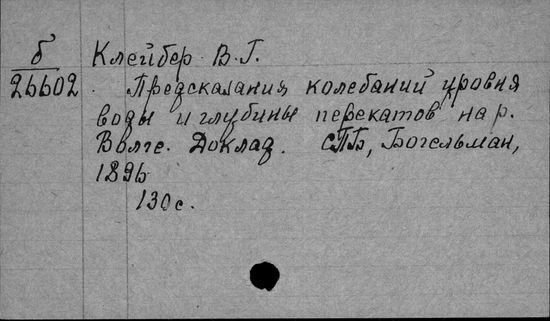 б Клейбер В.Г.
26602 Предсказания колебаний уровня
воды и глубины перекатов на р.
Волге. Доклад. СПБ, Богельман,
1896
130 с.